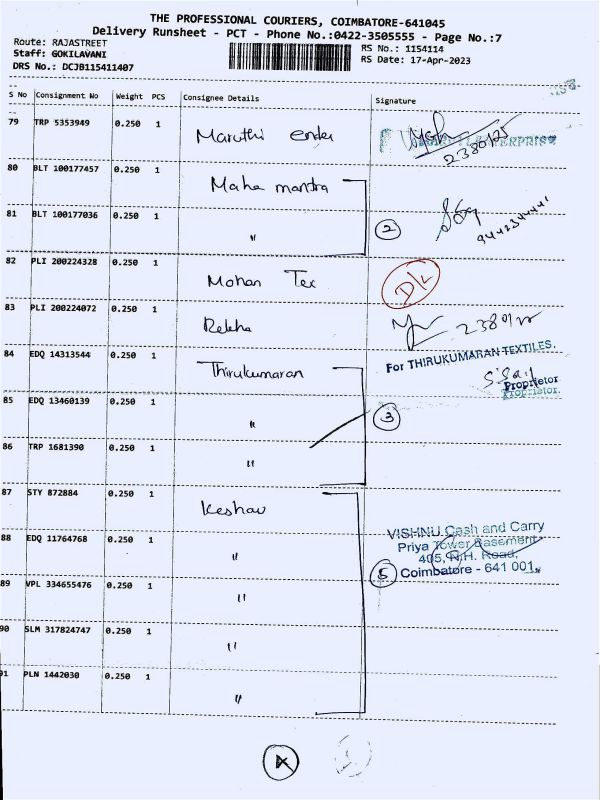 THE PROFESSIONAL COURIERS, COIMBATORE-641045
Delivery Runsheet - PCT - Phone No.:0422-3505555 - Page No.:7
Route: RAJASTREET
Staff: GOKILAVANI
DRS No.: DCJB115411407
RS No.: 1154114
RS Date: 17-Apr-2023
S No Consignment No Weight PCS Consignee Details Signature
79 TRP 5353949 0.250 1 Maruthi
80 BLT 100177457 0.250 1 Maha mantra
81 BLT 100177036 0.250 1 "
2
9442344441
82 PLI 200224328 0.250 1 Mohan Tex D/L
83 PLI 200224072 0.250 1 Rekha
84 EDQ 14313544 0.250 1 Thirukumaran
For THIRUKUMARAN TEXTILES.
Proprietor
Proprietor.
85 EDQ 13460139 0.250 1 "
3
86 TRP 1681390 0.250 1 "
87 STY 872884 0.250 1 Keshav
88 EDQ 11764768 0.250 1 "
VISHNU Cash and Carry
Priya Tower Basement
405, N.H. Road,
Coimbatore - 641 001.
5
89 VPL 334655476 0.250 1 "
90 SLM 317824747 0.250 1 "
91 PLN 1442030 0.250 1 "